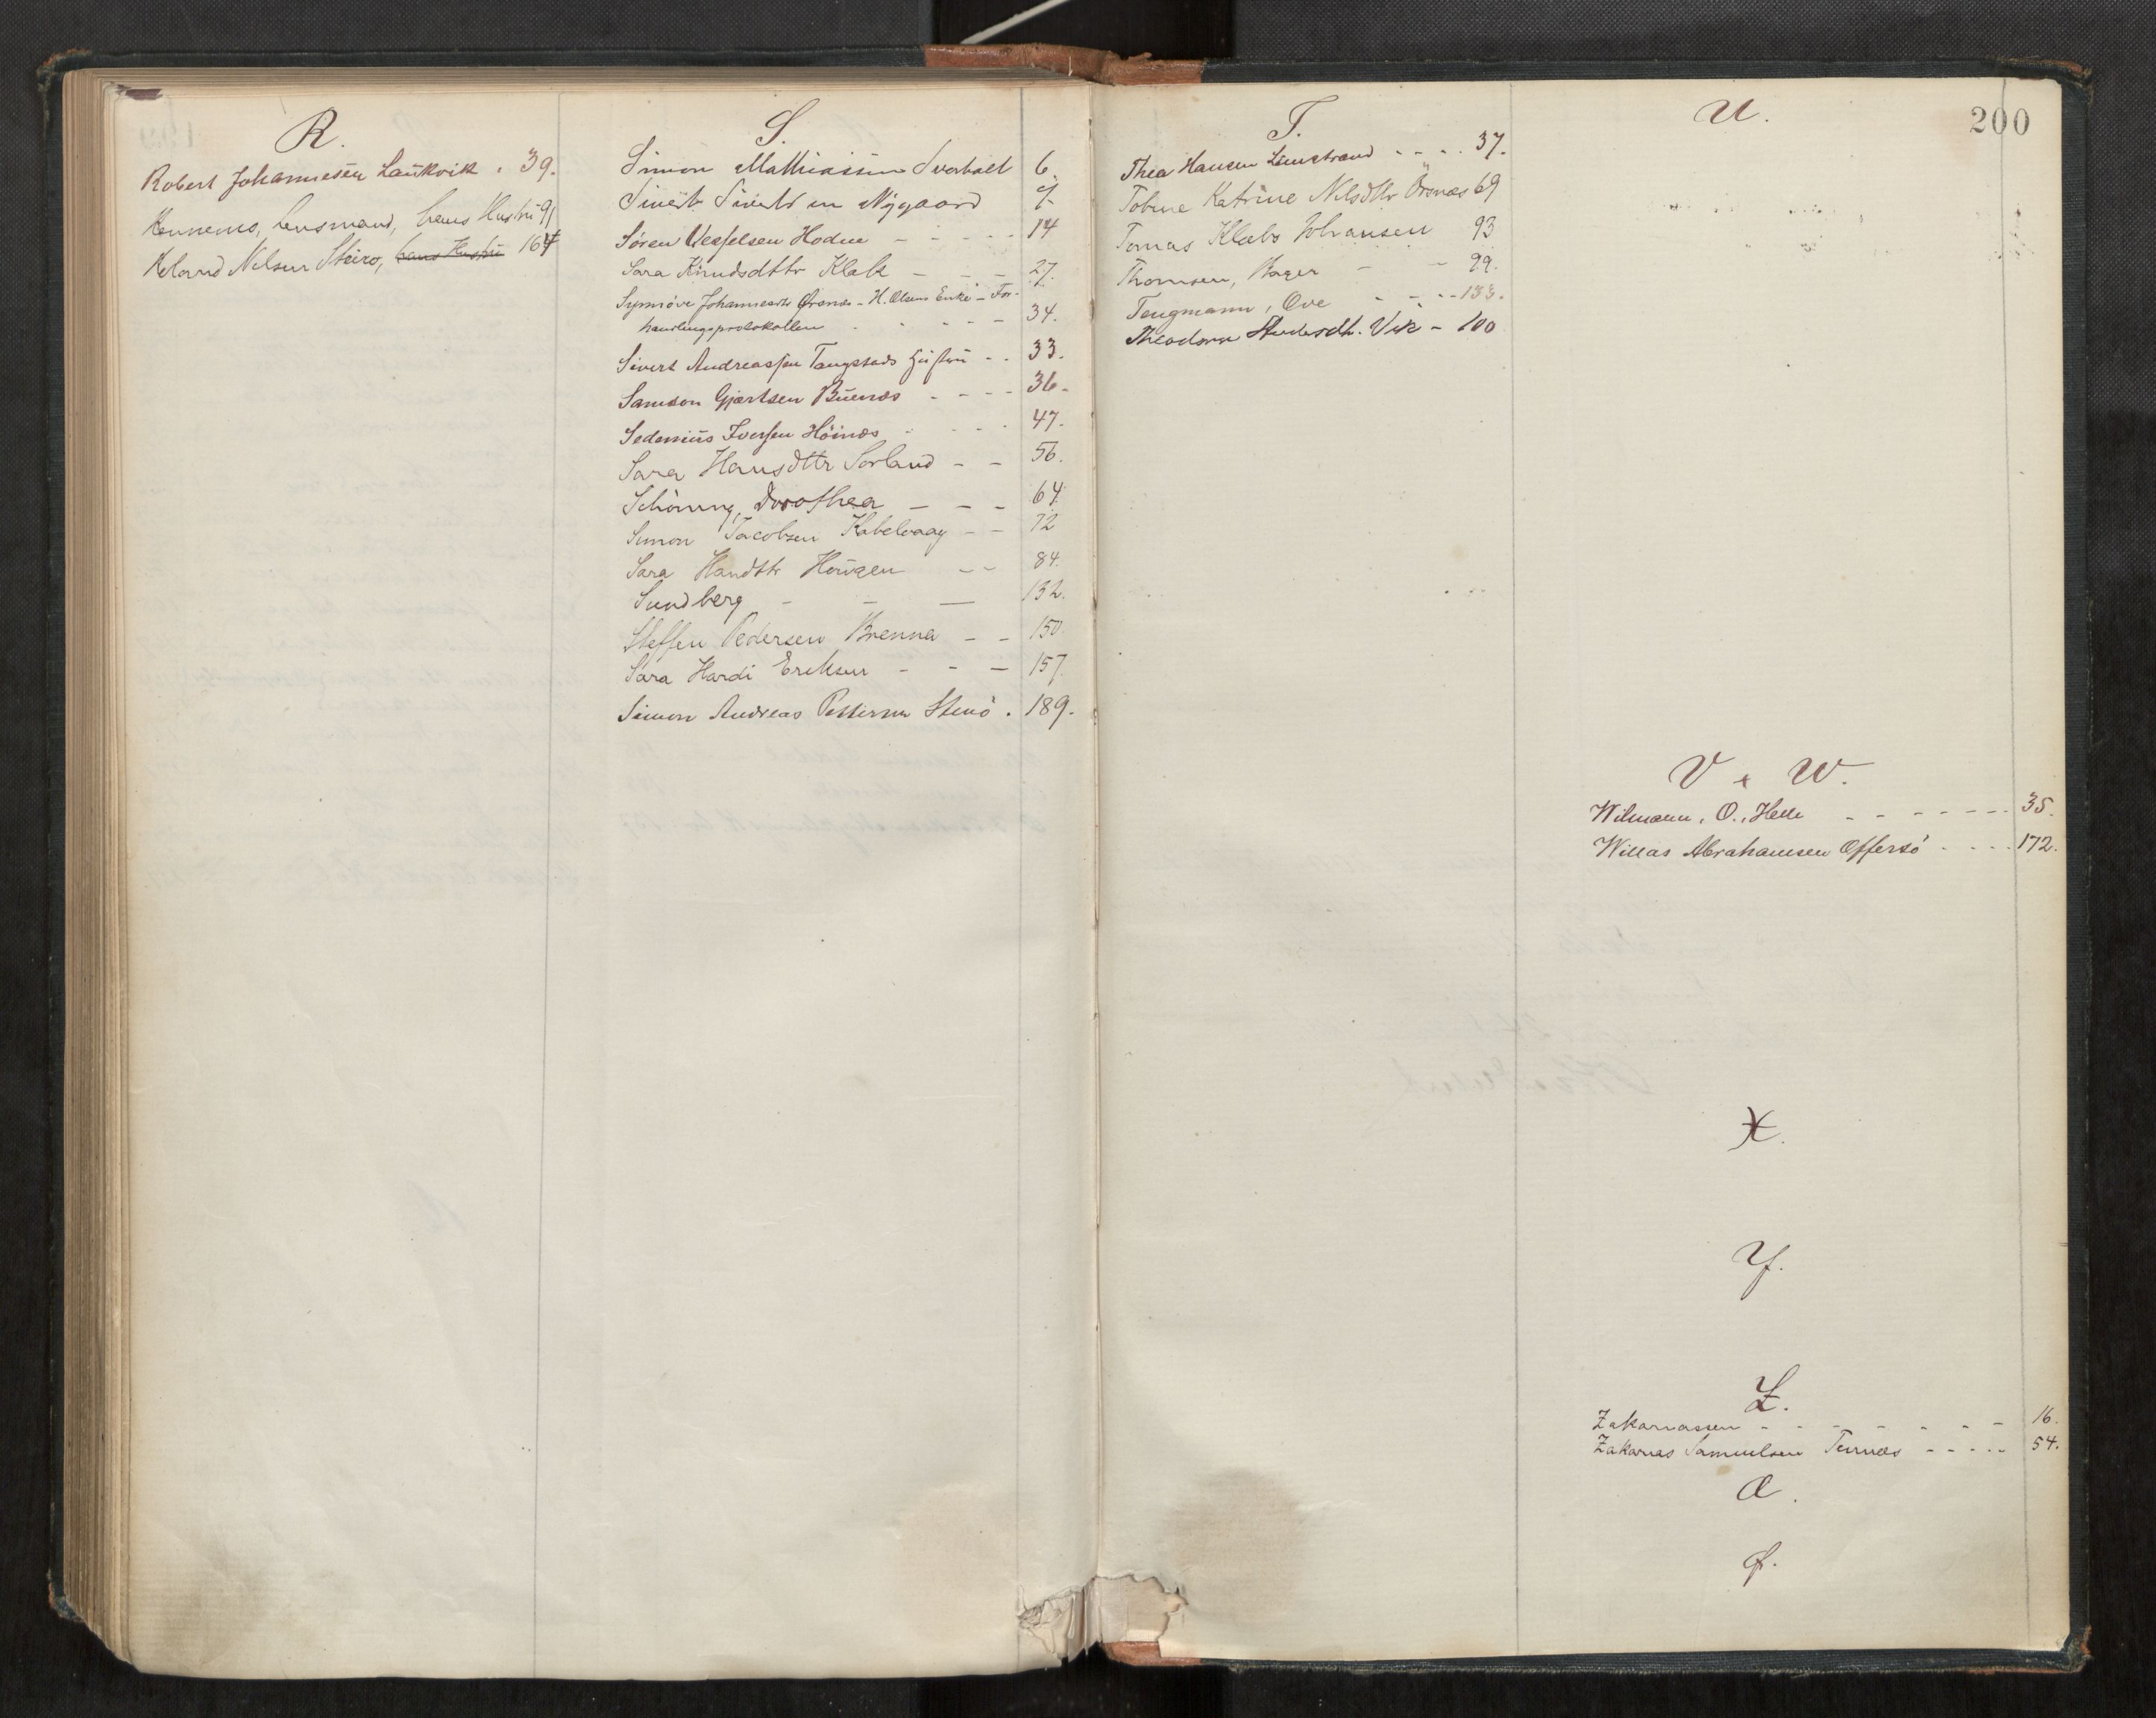 R.
Robert Johannesen Laukvik . 39.
Rennemo, Lensmand, hans Hustru 91
Roland Nilsen Steiro, hans Hustru 164
S.
Simon Mathiassen Svorholt 6.
Sivert Sivertsen Nygaard 7.
Søren Wesselsen Hodne - - - - - 14
Sara Knudsdttr Klak - - - 27.
Synnöve Johannesdtr Örsnes - H. Olsens Enke - For-
handlingsprotokollen . - - - - 34.
Sivert Andreassen Tangstads Hustru - . 33.
Samson Gjertsen Buenæs - - - - 36.
Sedenius Iversen Höinæs - - - . 47.
Sara Hansdttr Sorland - - 56.
Schöning, Dorothea - - - 64.
Simon Jacobsen Kabelvaag - - 72
Sara Handttr Haugen - - 84.
Sundberg - - - 132.
Steffen Pedersen Brenna - - 150.
Sara Hardi Eriksen - - - 157.
Simon Andreas Pettersen Stenö . 189.
T.
Thea Hansen Limstrand - - - . 37.
Tobine Katrine Nilsdttr Örsnæs 69
Tomas Klæbo Johansen 93
Thomsen, Bager - - 99.
Tengmann, Ove - - - - 133.
Theodora Andersdt. Vik - 100
U.
200
V & W.
Wilmann, O., Helle - - - - - - - 35.
Willas Abrahamsen Offersö - . . . 172.
X.
Y.
Z.
Zakariassen - - - - - - - 16.
Zakarias Samuelsen Tennes - - - - - 54.
Æ.
Ø.